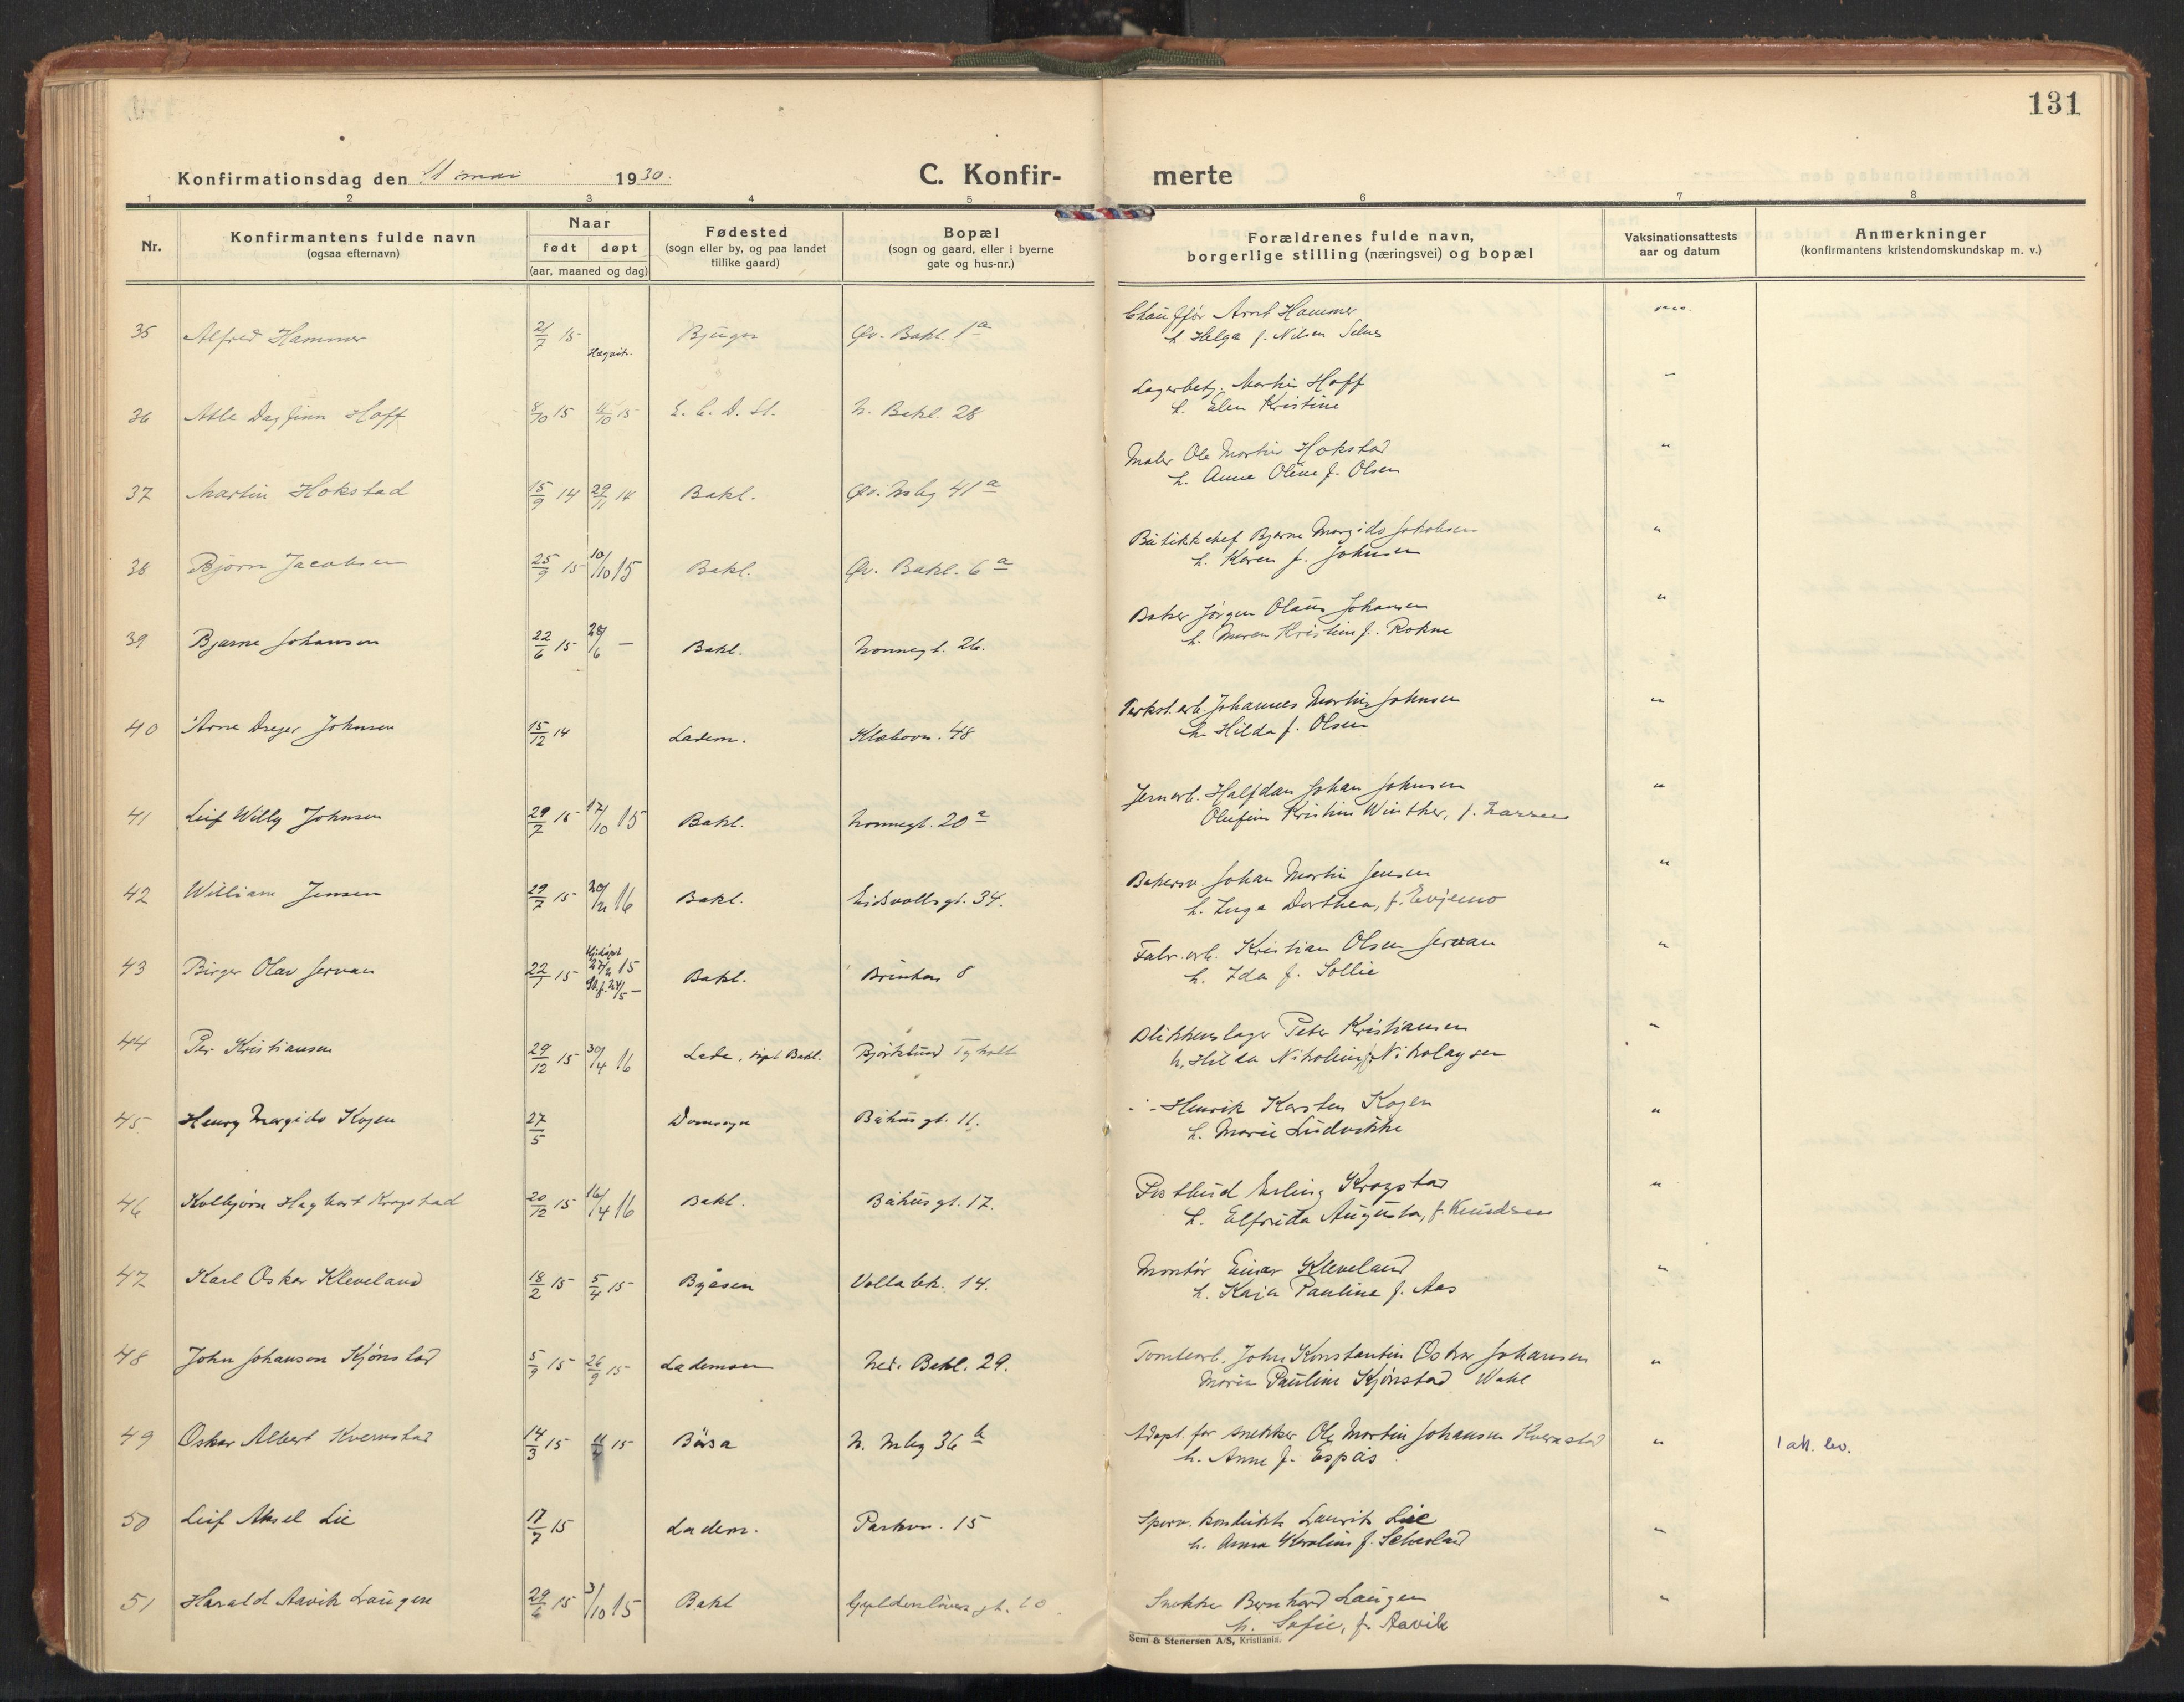 131
Konfirmationsdag den 11 mai 1930.
C. Konfir-
merte
1 2 3 4 5 6 7 8
Nr.
Konfirmantens fulde navn
(ogsaa efternavn)
Naar
født døpt
(aar, maaned og dag)
Fødested
(sogn eller by, og paa landet
tillike gaard)
Bopæl
(sogn og gaard, eller i byerne
gate og hus-nr.)
Forældrenes fulde navn,
borgerlige stilling (næringsvei) og bopæl
Vaksinationsattests
aar og datum
Anmerkninger
(konfirmantens kristendomskundskap m. v.)
Chauffør Arnt Hammer
35 Alfred Hammer 21/7 15 Bjugn Øv. Bakl. 1a
h. Helga f. Nilsen Selnes
Lagerbetj. Martin Hoff "
36 Atle Dagfinn Hoff 8/10 15 15 E. C. D. St. N. Bakl. 28
h. Elen Kristine
Maler Ole Martin Hokstad "
37 Martin Hokstad 15/9 14 29/11 14 Bakl. Øv. Mslg 41a
h. Anna Oline f. Olsen
Butikkchef Bjarne Margido Jakobsen "
38 Bjørn Jacobsen 25/9 15 10/10 15 Bakl. Øv. Bakl. 6a
h. Karen f. Johnsen
Baker Jørgen Olaus Johansen "
39 Bjarne Johansen 22/6 15 28/6 — Bakl. Nonnegt. 26.
h. Maren Kristine f. Rokne
Verkst.arb. Johannes Martin Johnsen "
40 Arne Dreyer Johnsen 15/12 14 Ladem. Klæbovn. 48
h. Hilda f. Olsen
Jernarb. Halfdan Johan Johnsen "
41 Leif Willy Johnsen 29/7 15 17/10 15 Bakl. Nonnegt. 20a
Olufine Kristine Winther, f. Larsen
Bakersv. Johan Martin Jensen "
42 William Jensen 29/7 15 16 Bakl. Eidsvollsgt. 34.
h. Inga Dorthea, f. Evjemo
Fabr.arb. Kristian Olsen Jervan "
43 Birger Olav Jervan 22/1 15 Hjdøpt 15 24/5 — Bakl. Brinken 8
h. Ida f. Sollie
Blikkenslager Peter Kristiansen "
44 Per Kristiansen 29/12 15 30/4 16 Lade, døpt Bakl. Bjørklund Tyholt
h. Hilda Nikoline f. Nikolaysen
Henrik Karsten Kojen "
45 Henry Margido Kojen 27/5 Domsogn Båhusgt. 11.
h. Marie Ludvikke
Postbud Erling Krogstad "
46 Kolbjørn Hagbart Krogstad 20/12 15 16/4 16 Bakl. Båhusgt. 17.
h. Elfrida Augusta, f. Knudsen
Montør Einar Kleveland "
47 Karl Oskar Kleveland 18/2 15 5/4 15 Byåsen Vollabk. 14.
h. Kaja Pauline f. Aas
Tomtearb. John Konstantin Oskar Johansen "
48 John Johanson Kjønstad 5/9 15 26/9 15 Lademoen Ned. Bakl. 29.
Marie Pauline Kjønstad Wahl
Adopt. far snekker Ole Martin Johansen Kvernstad "
49 Oskar Albert Kvernstad 14/3 15 11/4 15 Børsa N. Mslg 36b 1 att. lev.
h. Anne f. Espås
Sporv. konduktr Laurits Lie "
50 Leif Aksel Lie 17/7 15 Ladem. Parkvn. 15
h. Anna Karoline f.
Snekker Bernhard Laugen "
51 Harald Aavik Laugen 29/6 15 3/10 15 Bakl Gyldenløvesgt. 10.
h. Sofie, f. Aavik
Sem & Stenersen A/S, Kristiania.